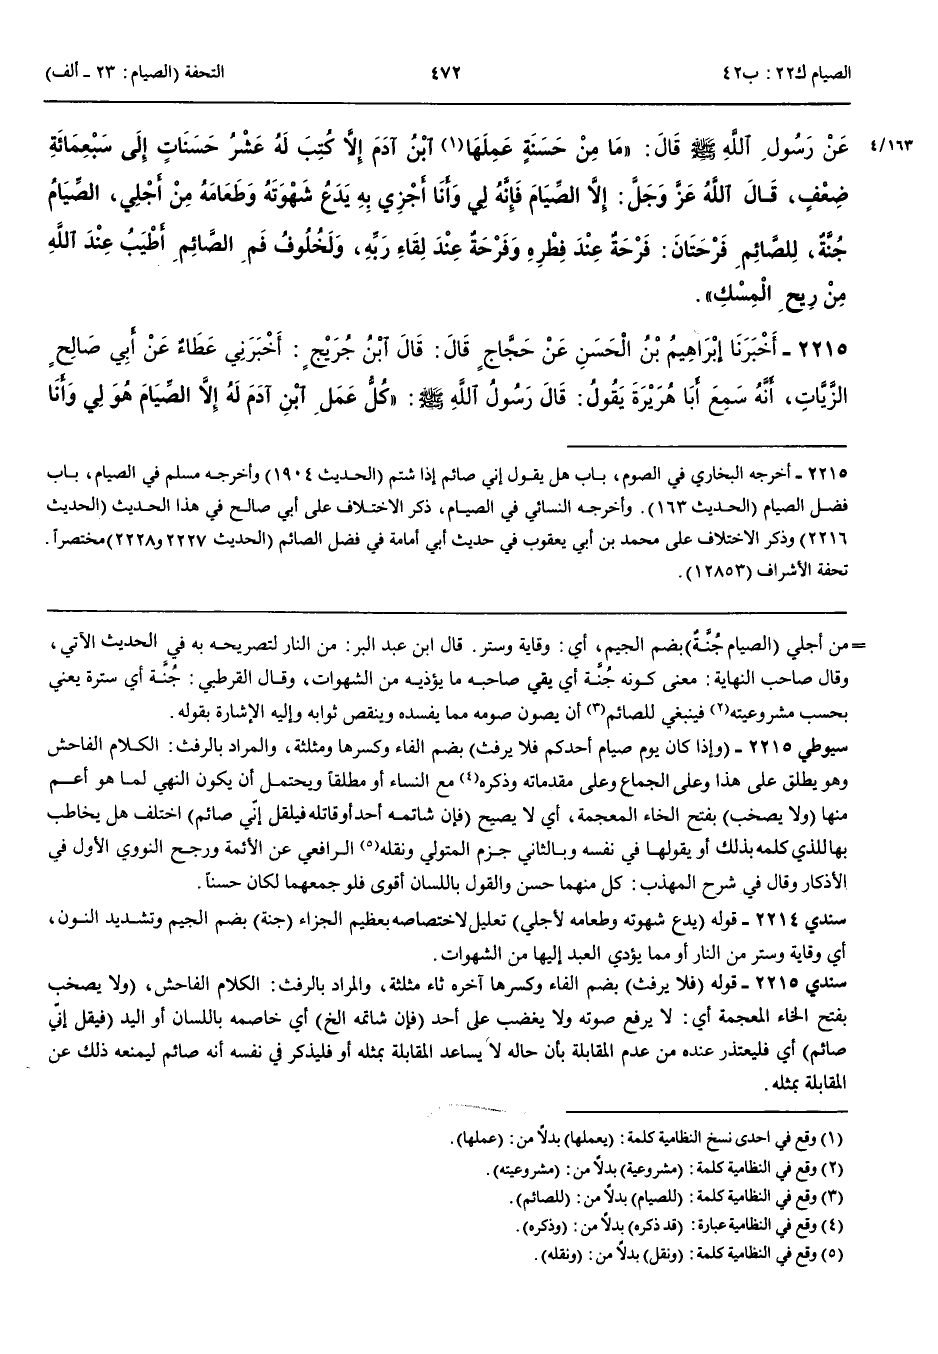 الصيام ك٢٢: ب٤٢ ٤٧٢ التحفة (الصيام: ٢٣ ـ ألف)
٤/١٦٣ عَنْ رَسُولِ ٱللَّهِ ﷺ قَالَ: «مَا مِنْ حَسَنَةٍ عَمِلَهَا(١) ٱبْنُ آدَمَ إِلَّا كُتِبَ لَهُ عَشْرُ حَسَنَاتٍ إِلَى سَبْعِمِائَةِ
ضِعْفٍ، قَالَ ٱللَّهُ عَزَّ وَجَلَّ: إِلَّا الصِّيَامَ فَإِنَّهُ لِي وَأَنَا أَجْزِي بِهِ يَدَعُ شَهْوَتَهُ وَطَعَامَهُ مِنْ أَجْلِي، الصِّيَامُ
جُنَّةٌ، لِلصَّائِمِ فَرْحَتَانِ: فَرْحَةٌ عِنْدَ فِطْرِهِ وَفَرْحَةٌ عِنْدَ لِقَاءِ رَبِّهِ، وَلَخُلُوفُ فَمِ الصَّائِمِ أَطْيَبُ عِنْدَ ٱللَّهِ
مِنْ رِيحِ الْمِسْكِ».
٢٢١٥ ـ أَخْبَرَنَا إِبْرَاهِيمُ بْنُ الْحَسَنِ عَنْ حَجَّاجٍ قَالَ: قَالَ ٱبْنُ جُرَيْجٍ: أَخْبَرَنِي عَطَاءٌ عَنْ أَبِي صَالِحٍ
الزَّيَّاتِ، أَنَّهُ سَمِعَ أَبَا هُرَيْرَةَ يَقُولُ: قَالَ رَسُولُ ٱللَّهِ ﷺ: «كُلُّ عَمَلِ ٱبْنِ آدَمَ لَهُ إِلَّا الصِّيَامَ هُوَ لِي وَأَنَا
٢٢١٥ ـ أخرجه البخاري في الصوم، باب هل يقول إني صائم إذا شتم (الحديث ١٩٠٤) وأخرجه مسلم في الصيام، باب
فضل الصيام (الحديث ١٦٣). وأخرجه النسائي في الصيام، ذكر الاختلاف على أبي صالح في هذا الحديث (الحديث
٢٢١٦) وذكر الاختلاف على محمد بن أبي يعقوب في حديث أبي أمامة في فضل الصائم (الحديث ٢٢٢٧ و٢٢٢٨) مختصراً.
تحفة الأشراف (١٢٨٥٣).
= من أجلي (الصيام جُنَّةٌ) بضم الجيم، أي: وقاية وستر. قال ابن عبد البر: من النار لتصريحه به في الحديث الآتي،
وقال صاحب النهاية: معنى كونه جُنَّة أي يقي صاحبه ما يؤذيه من الشهوات، وقال القرطبي: جُنَّة أي سترة يعني
بحسب مشروعيته(٢) فينبغي للصائم(٣) أن يصون صومه مما يفسده وينقص ثوابه وإليه الإشارة بقوله.
سيوطي ٢٢١٥ ـ (وإذا كان يوم صيام أحدكم فلا يرفث) بضم الفاء وكسرها ومثلثة، والمراد بالرفث: الكلام الفاحش
وهو يطلق على هذا وعلى الجماع وعلى مقدماته وذكره(٤) مع النساء أو مطلقاً ويحتمل أن يكون النهي لما هو أعم
منها (ولا يصخب) بفتح الخاء المعجمة، أي لا يصيح (فإن شاتمه أحد أو قاتله فليقل إنّي صائم) اختلف هل يخاطب
بها للذي كلمه بذلك أو يقولها في نفسه وبالثاني جزم المتولي ونقله(٥) الرافعي عن الأئمة ورجح النووي الأول في
الأذكار وقال في شرح المهذب: كل منهما حسن والقول باللسان أقوى فلو جمعهما لكان حسناً.
سندي ٢٢١٤ ـ قوله (يدع شهوته وطعامه لأجلي) تعليل لاختصاصه بعظيم الجزاء (جنة) بضم الجيم وتشديد النون،
أي وقاية وستر من النار أو مما يؤدي العبد إليها من الشهوات.
سندي ٢٢١٥ ـ قوله (فلا يرفث) بضم الفاء وكسرها آخره ثاء مثلثة، والمراد بالرفث: الكلام الفاحش، (ولا يصخب
بفتح الخاء المعجمة أي: لا يرفع صوته ولا يغضب على أحد (فإن شاتمه الخ) أي خاصمه باللسان أو اليد (فيقل إنّي
صائم) أي فليعتذر عنده من عدم المقابلة بأن حاله لا يساعد المقابلة بمثله أو فليذكر في نفسه أنه صائم ليمنعه ذلك عن
المقابلة بمثله.
(١) وقع في احدى نسخ النظامية كلمة: (يعملها) بدلاً من: (عملها).
(٢) وقع في النظامية كلمة: (مشروعية) بدلاً من: (مشروعيته).
(٣) وقع في النظامية كلمة: (للصيام) بدلاً من: (للصائم).
(٤) وقع في النظامية عبارة: (قد ذكره) بدلاً من: (وذكره).
(٥) وقع في النظامية كلمة: (ونقل) بدلاً من: (ونقله).